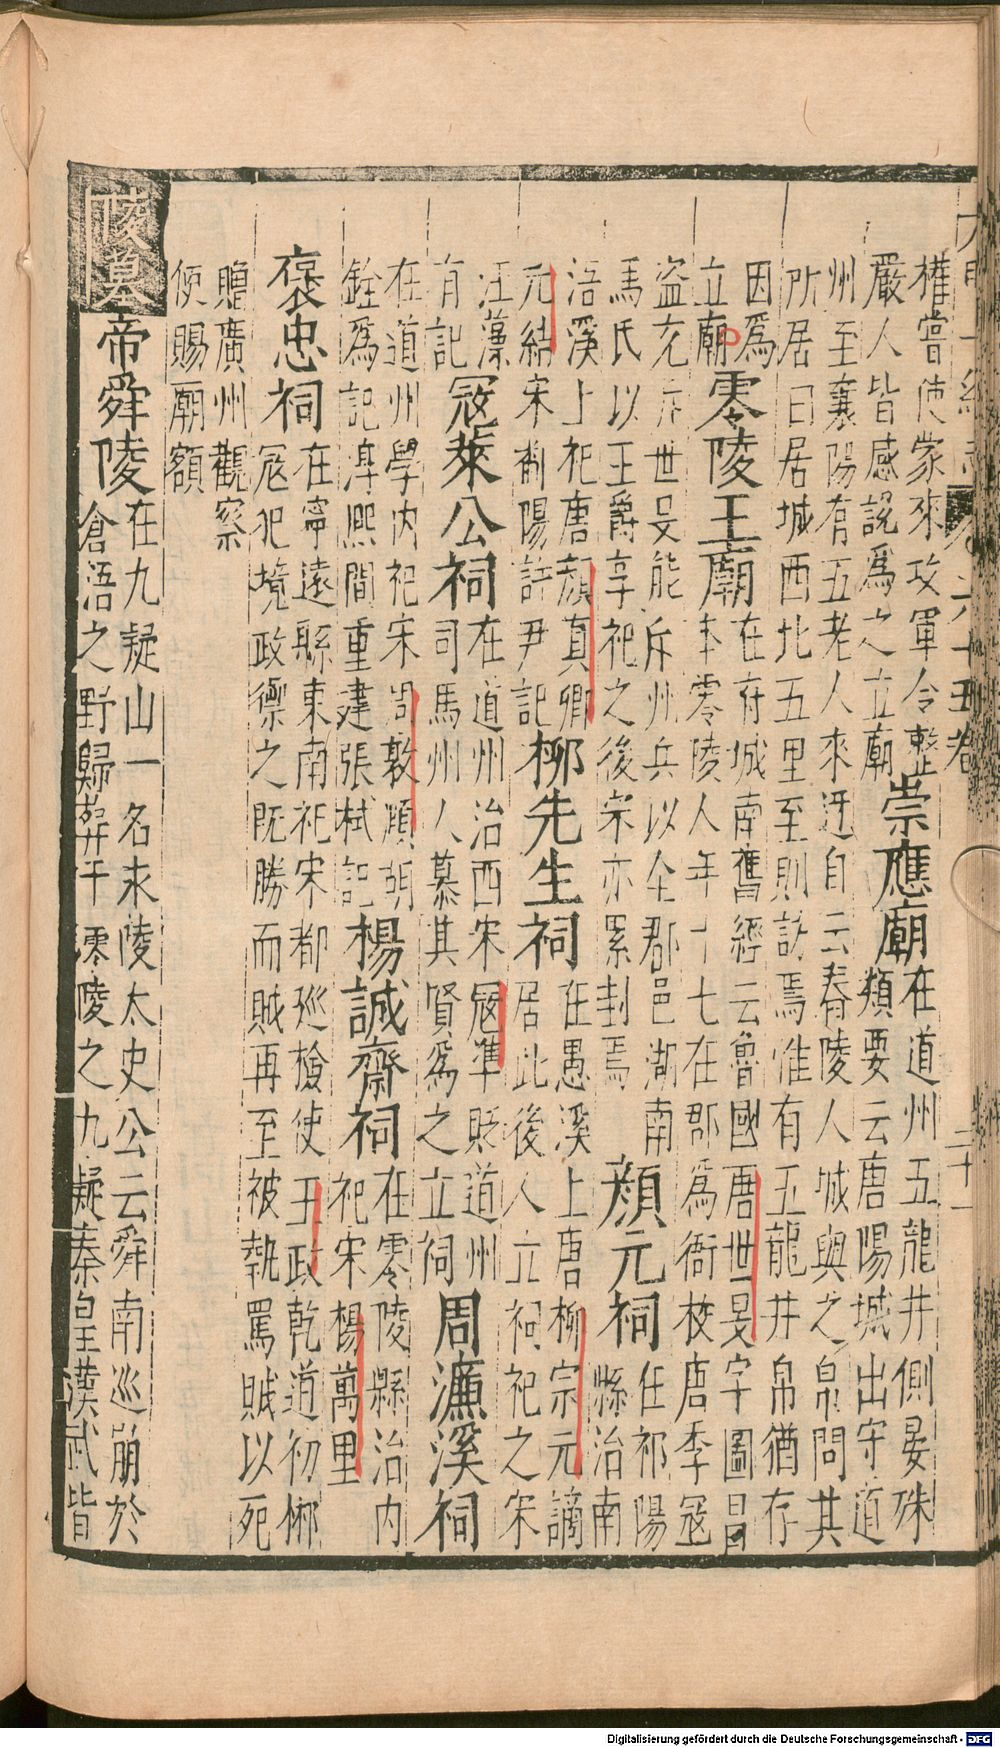 大明一統志 卷六十五卷 二十一
權嘗使蒙來攻軍令整
嚴人皆感說為之立廟
崇應廟
在道州五龍井側晏殊
類要云唐陽城出守道
州至襄陽有五老人來迓自云舂陵人城與之帛問其
所居曰居城西北五里至則訪焉惟有五龍井帛猶存
因為
立廟
零陵王廟
在府城南舊經云魯國唐世旻字圖昌
本零陵人年十七在郡為衙校唐季寇
盜充斥世旻能斥州兵以全郡邑湖南
馬氏以王爵享祀之後宋亦累封焉
顏元祠
在祁陽
縣治南
浯溪上祀唐顏真卿
元結宋陽許尹記
柳先生祠
在愚溪上唐柳宗元謫
居此後人立祠祀之宋
汪藻
有記
寇萊公祠
在道州治西宋寇準貶道州
司馬州人慕其賢為之立祠
周濂溪祠
在道州學內祀宋周敦頤胡
銓為記淳熙間重建張栻記
楊誠齋祠
在零陵縣治內
祀宋楊萬里
褒忠祠
在寧遠縣東南祀宋都巡檢使王政乾道初郴
寇犯境政禦之既勝而賊再至被執罵賊以死
贈廣州觀察
使賜廟額
陵墓
帝舜陵
在九疑山一名永陵太史公云舜南巡崩於
倉浯之野歸葬于零陵之九疑秦皇漢武皆
Digitalisierung gefördert durch die Deutsche Forschungsgemeinschaft - DFG